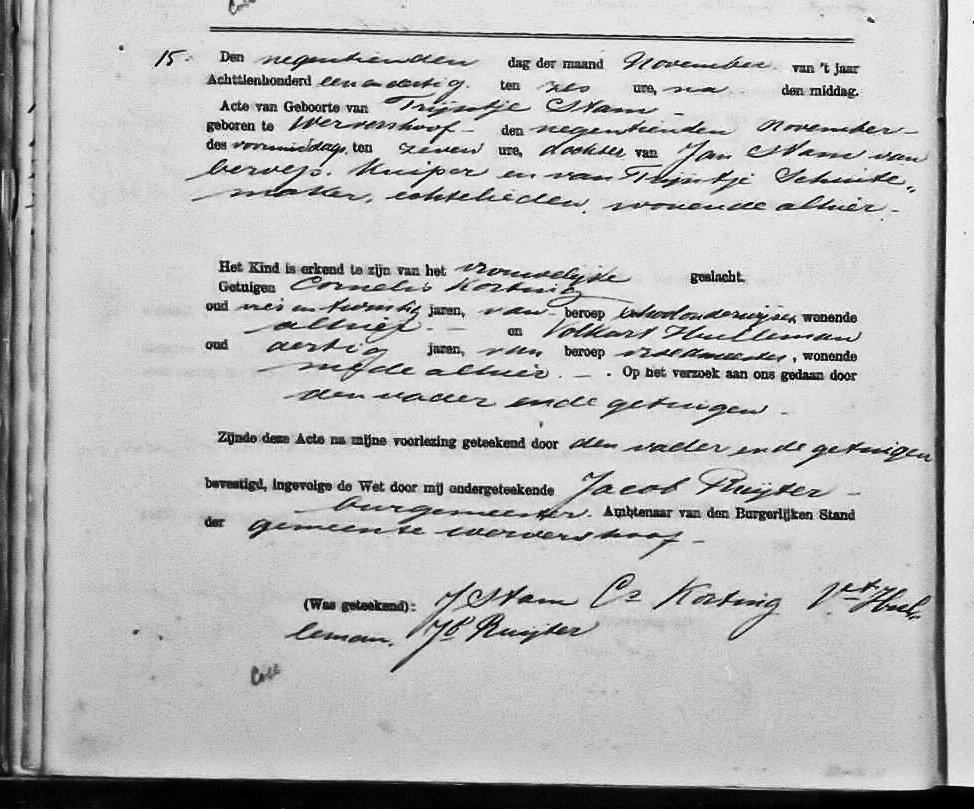 15. Den negentienden dag der maand November van 't jaar
Achttienhonderd eenendertig ten zes ure, na den middag.
Acte van Geboorte van Trijntje Stam -
geboren te Wervershoof - den negentienden November -
des voormiddags ten zeven ure, dochter van Jan Stam van
beroep kuiper en van Trijntje Schuite"
maker, echtelieden, wonende alhier. -
Het Kind is erkend te zijn van het vrouwelijke geslacht.
Getuigen Cornelis Korting
oud en twintig jaren, van beroep schoolonderwijser, wonende
alhier - en Volkert Hulleman
oud dertig jaren, van beroep vroedmeester, wonende
mede alhier. - . Op het verzoek aan ons gedaan door
den vader en de getuigen -
Zijnde deze Acte na mijne voorlezing geteekend door den vader en de getuigen
bevestigd, ingevolge de Wet door mij ondergeteekende Jacob Ruijter -
burgemeester. Ambtenaar van den Burgerlijken Stand
der gemeente Wervershoof -
(Was geteekend): J Stam Cs Korting Vkt Hul"
leman. Jb Ruijter
Coll